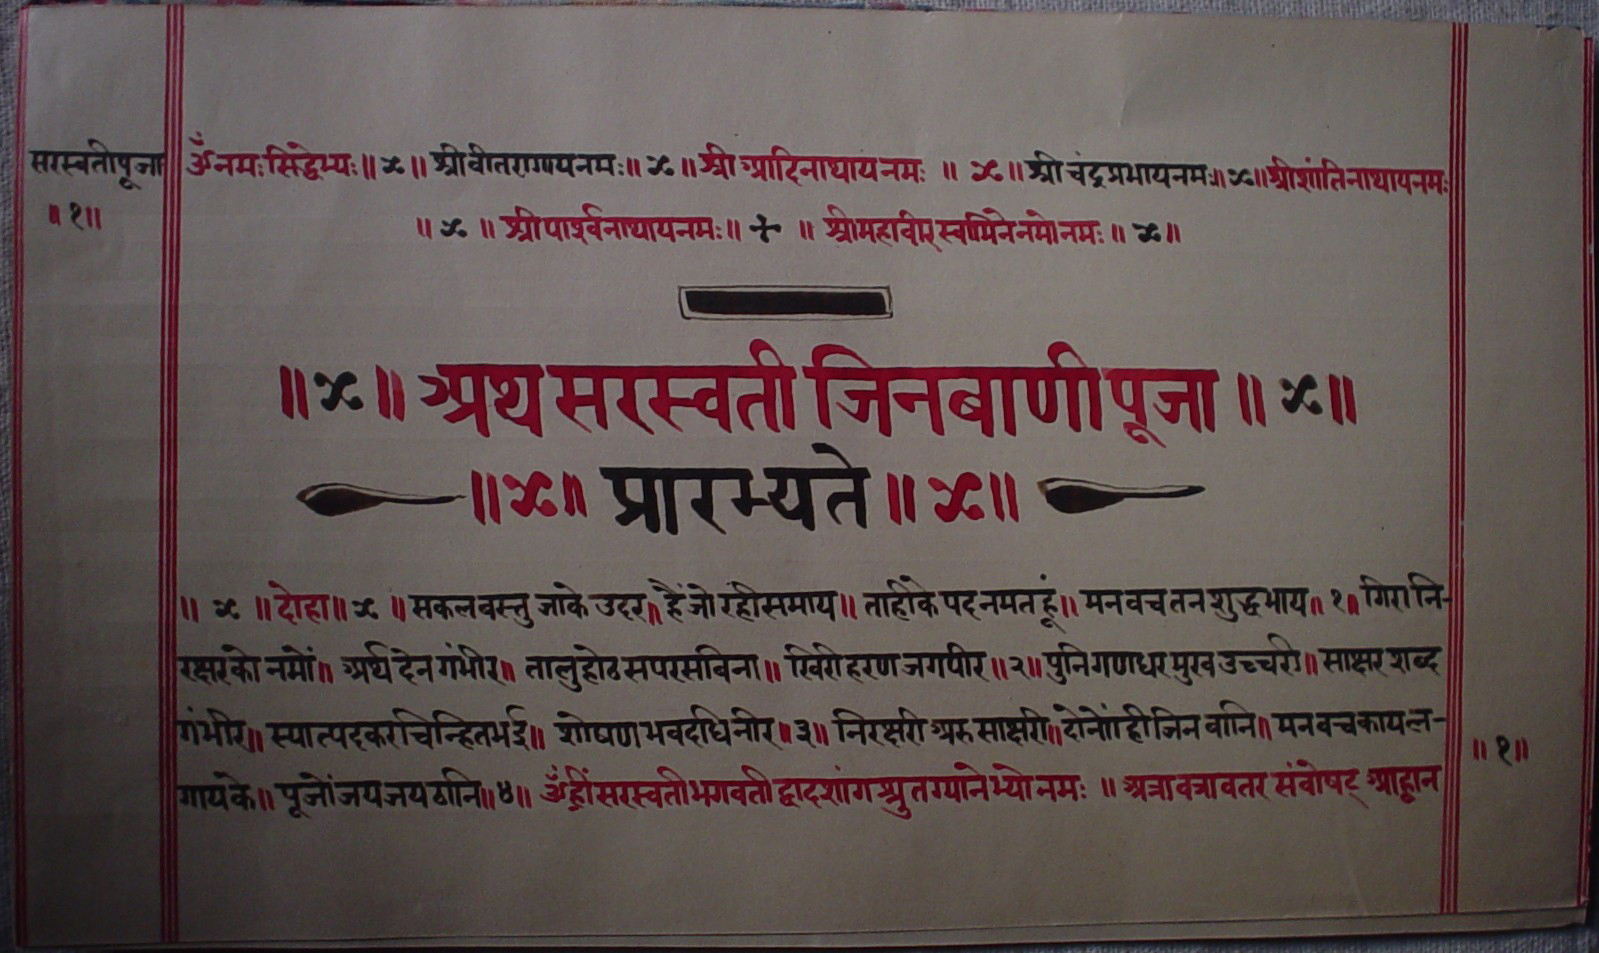 सरस्वतीपूजा
॥१॥
ॐनमःसिद्धेभ्यः॥ ॥श्रीवीतरागायनमः॥ ॥श्रीआदिनाथायनमः॥ ॥श्रीचंद्रप्रभायनमः॥ ॥श्रीशांतिनाथायनमः
॥ ॥श्रीपार्श्वनाथायनमः॥ ॥श्रीमहावीरस्वामिनेनमोनमः॥ ॥
॥ ॥अथ सरस्वती जिनबाणीपूजा॥ ॥
॥ ॥प्रारम्यते॥ ॥
॥ ॥दोहा॥ ॥सकलवस्तु जाके उदर॥ हैं जो रहीसमाय॥ ताहीके पद नमत हूं॥ मनवचतन शुद्धभाय॥१॥ गिरा नि-
रक्षरको नमों॥ अर्थ देन गंभीर॥ तालुहोठ सपरस विना॥ खिरी हरण जगपीर॥२॥ पुनिगणधर मुख उच्चरी॥ साक्षर शब्द
गंभीर॥ स्यात्पदकर चिन्हितभई॥ शोषण भवदधि नीर॥३॥ निरक्षरी अरु साक्षरी॥ दोनों ही जिन वानि॥ मनवचकाय ल-
गायके॥ पूजों जयजय ठानि॥४॥ ॐह्रीं सरस्वतीभगवती द्वादशांग श्रुतग्यानेभ्यो नमः॥ अत्रावत्रावतर संवोषट् आह्वान
॥१॥